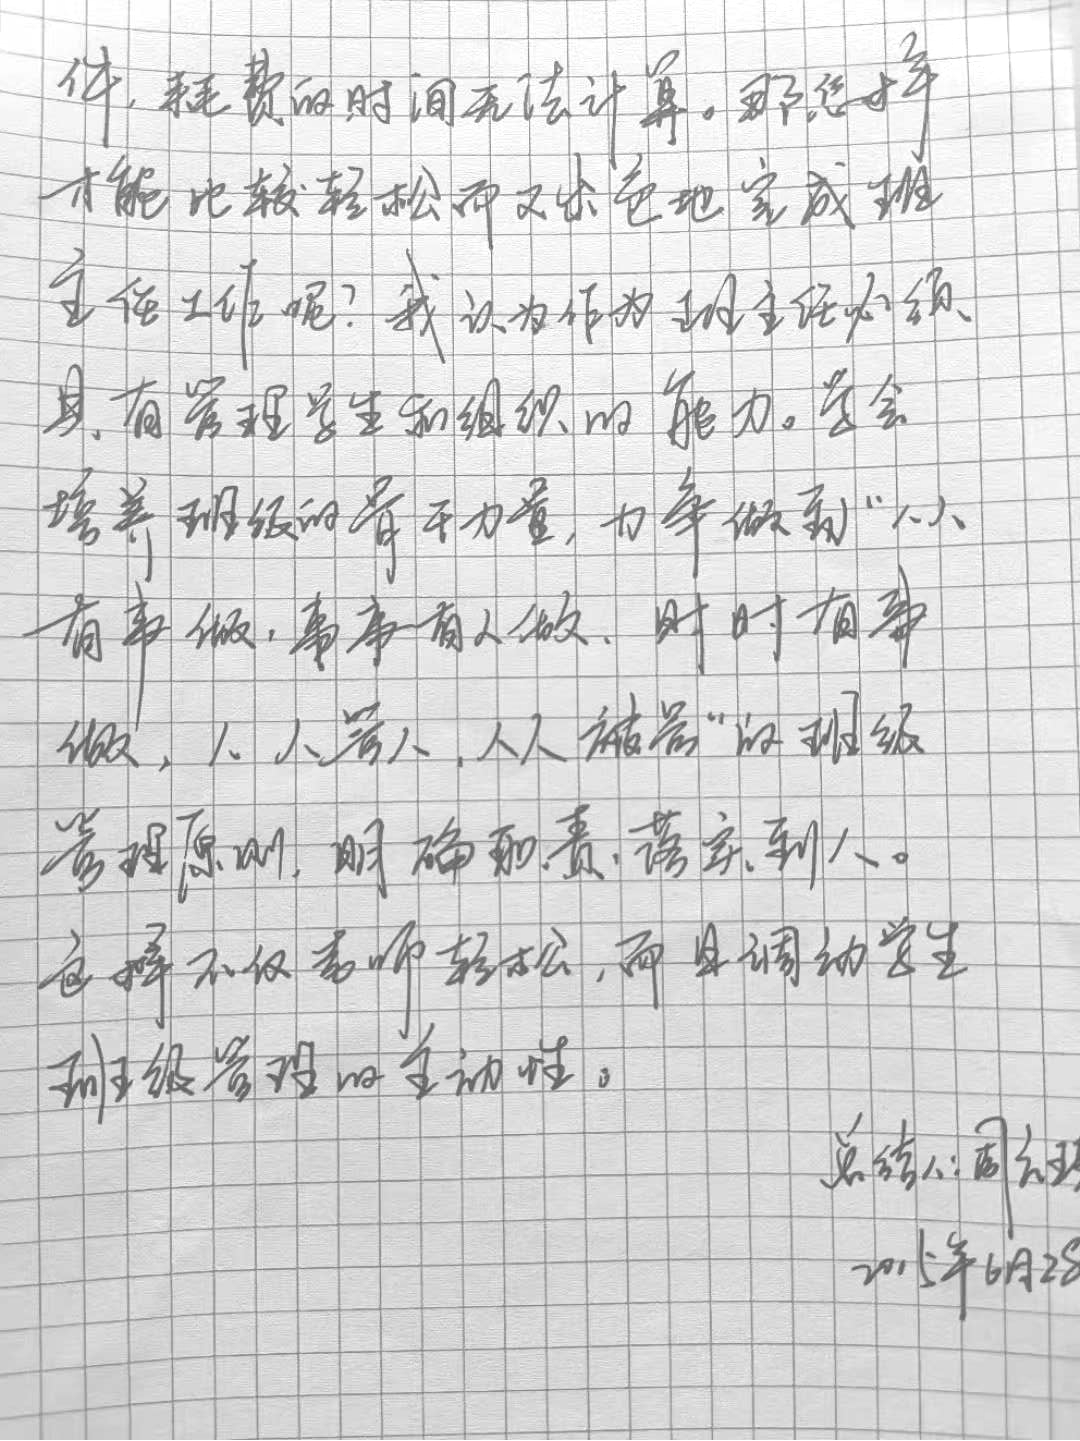 件,耗费的时间无法计算。那怎样
才能比较轻松而又出色地完成班
主任工作呢?我认为作为班主任必须
具有管理学生和组织的能力。学会
培养班级的骨干力量,力争做到“人人
有事做,事事有人做、时时有事
做,人人管人,人人被管”的班级
管理原则,明确职责,落实到人。
这样不仅老师轻松,而且调动学生
班级管理的主动性。
总结人:周
2015年6月28